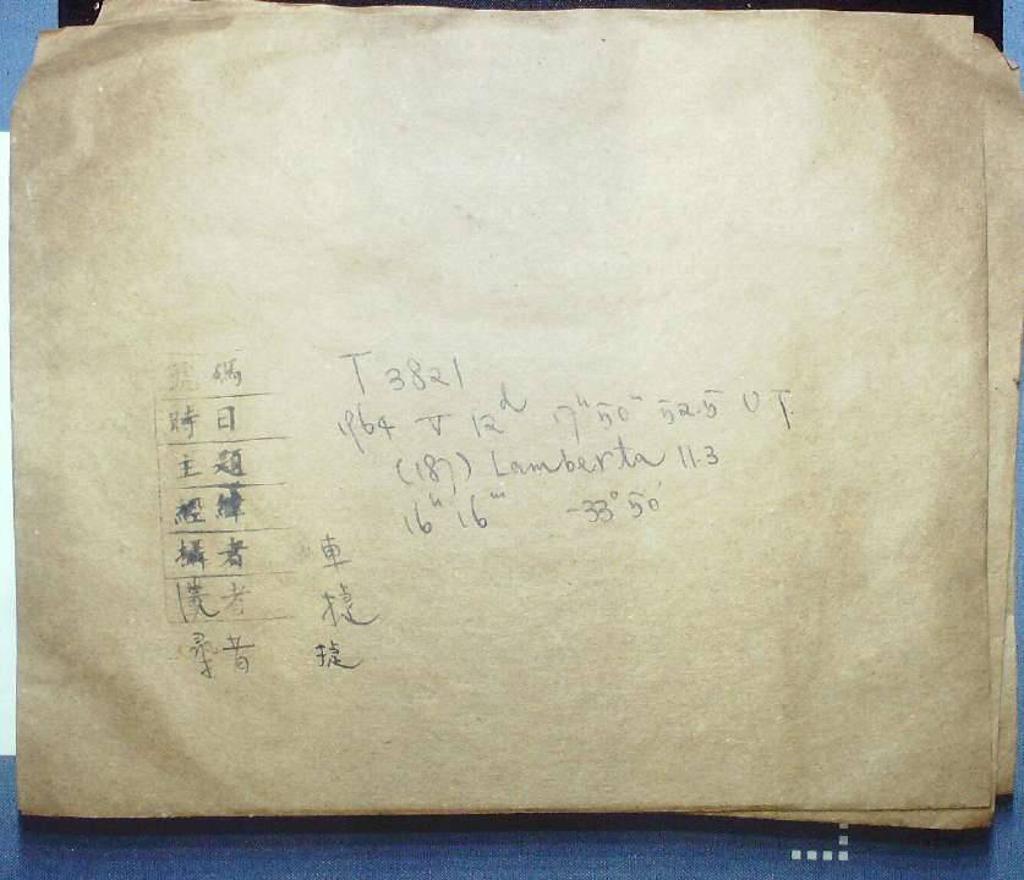 號碼 T 3821
時日 1964 V 12ᵈ 17ʰ 50ᵐ 52.5 U T.
主題 (187) Lamberta 11.3
經緯 16ʰ 16ᵐ -33° 50′
攝者 車
者 捷
尋者 捷